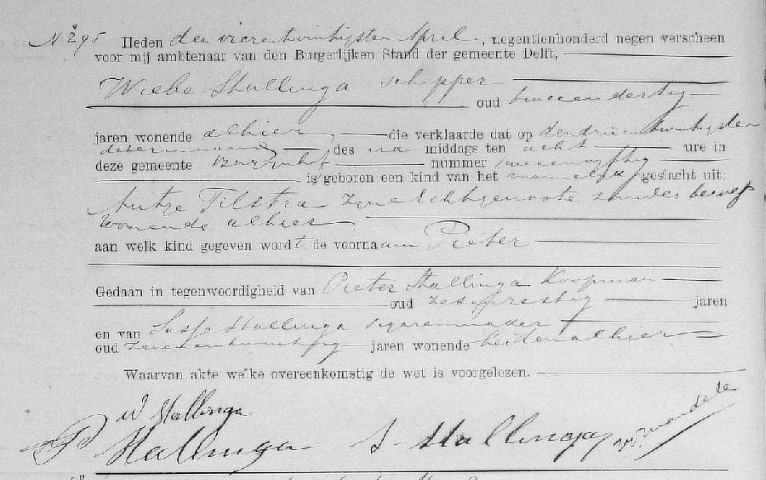 No 295 Heden den vierentwintigsten April, negentienhonderd negen verscheen
voor mij ambtenaar van den Burgerlijken Stand der gemeente Delft,
Wiebe Stallinga schipper
oud tweeendertig
jaren wonende alhier die verklaarde dat op den drieentwintigsten
dezer maand des na middags ten acht ure in
deze gemeente nummer
is geboren een kind van het mannelijk geslacht uit:
Antje Tilstra zyne Echtgenoote zonder beroep
wonende alhier
aan welk kind gegeven wordt de voornaam Pieter
Gedaan in tegenwoordigheid van Pieter Stallinga Koopman
oud jaren
en van Stallinga sigarenmaker
oud zevenentwintig jaren wonende beiden alhier
Waarvan akte welke overeenkomstig de wet is voorgelezen.
W Stallinga
P Stallinga S Stallinga